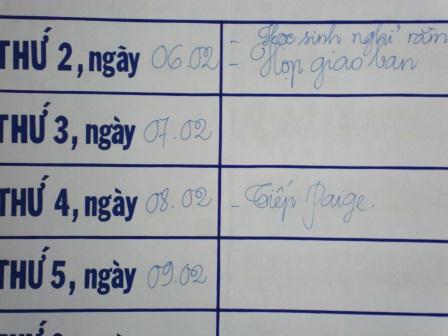 THỨ 2, ngày 06.02 - Học sinh nghỉ rằm
- Họp giao ban
THỨ 3, ngày 07.02
THỨ 4, ngày 08.02 - Tiếp Paige.
THỨ 5, ngày 09.02